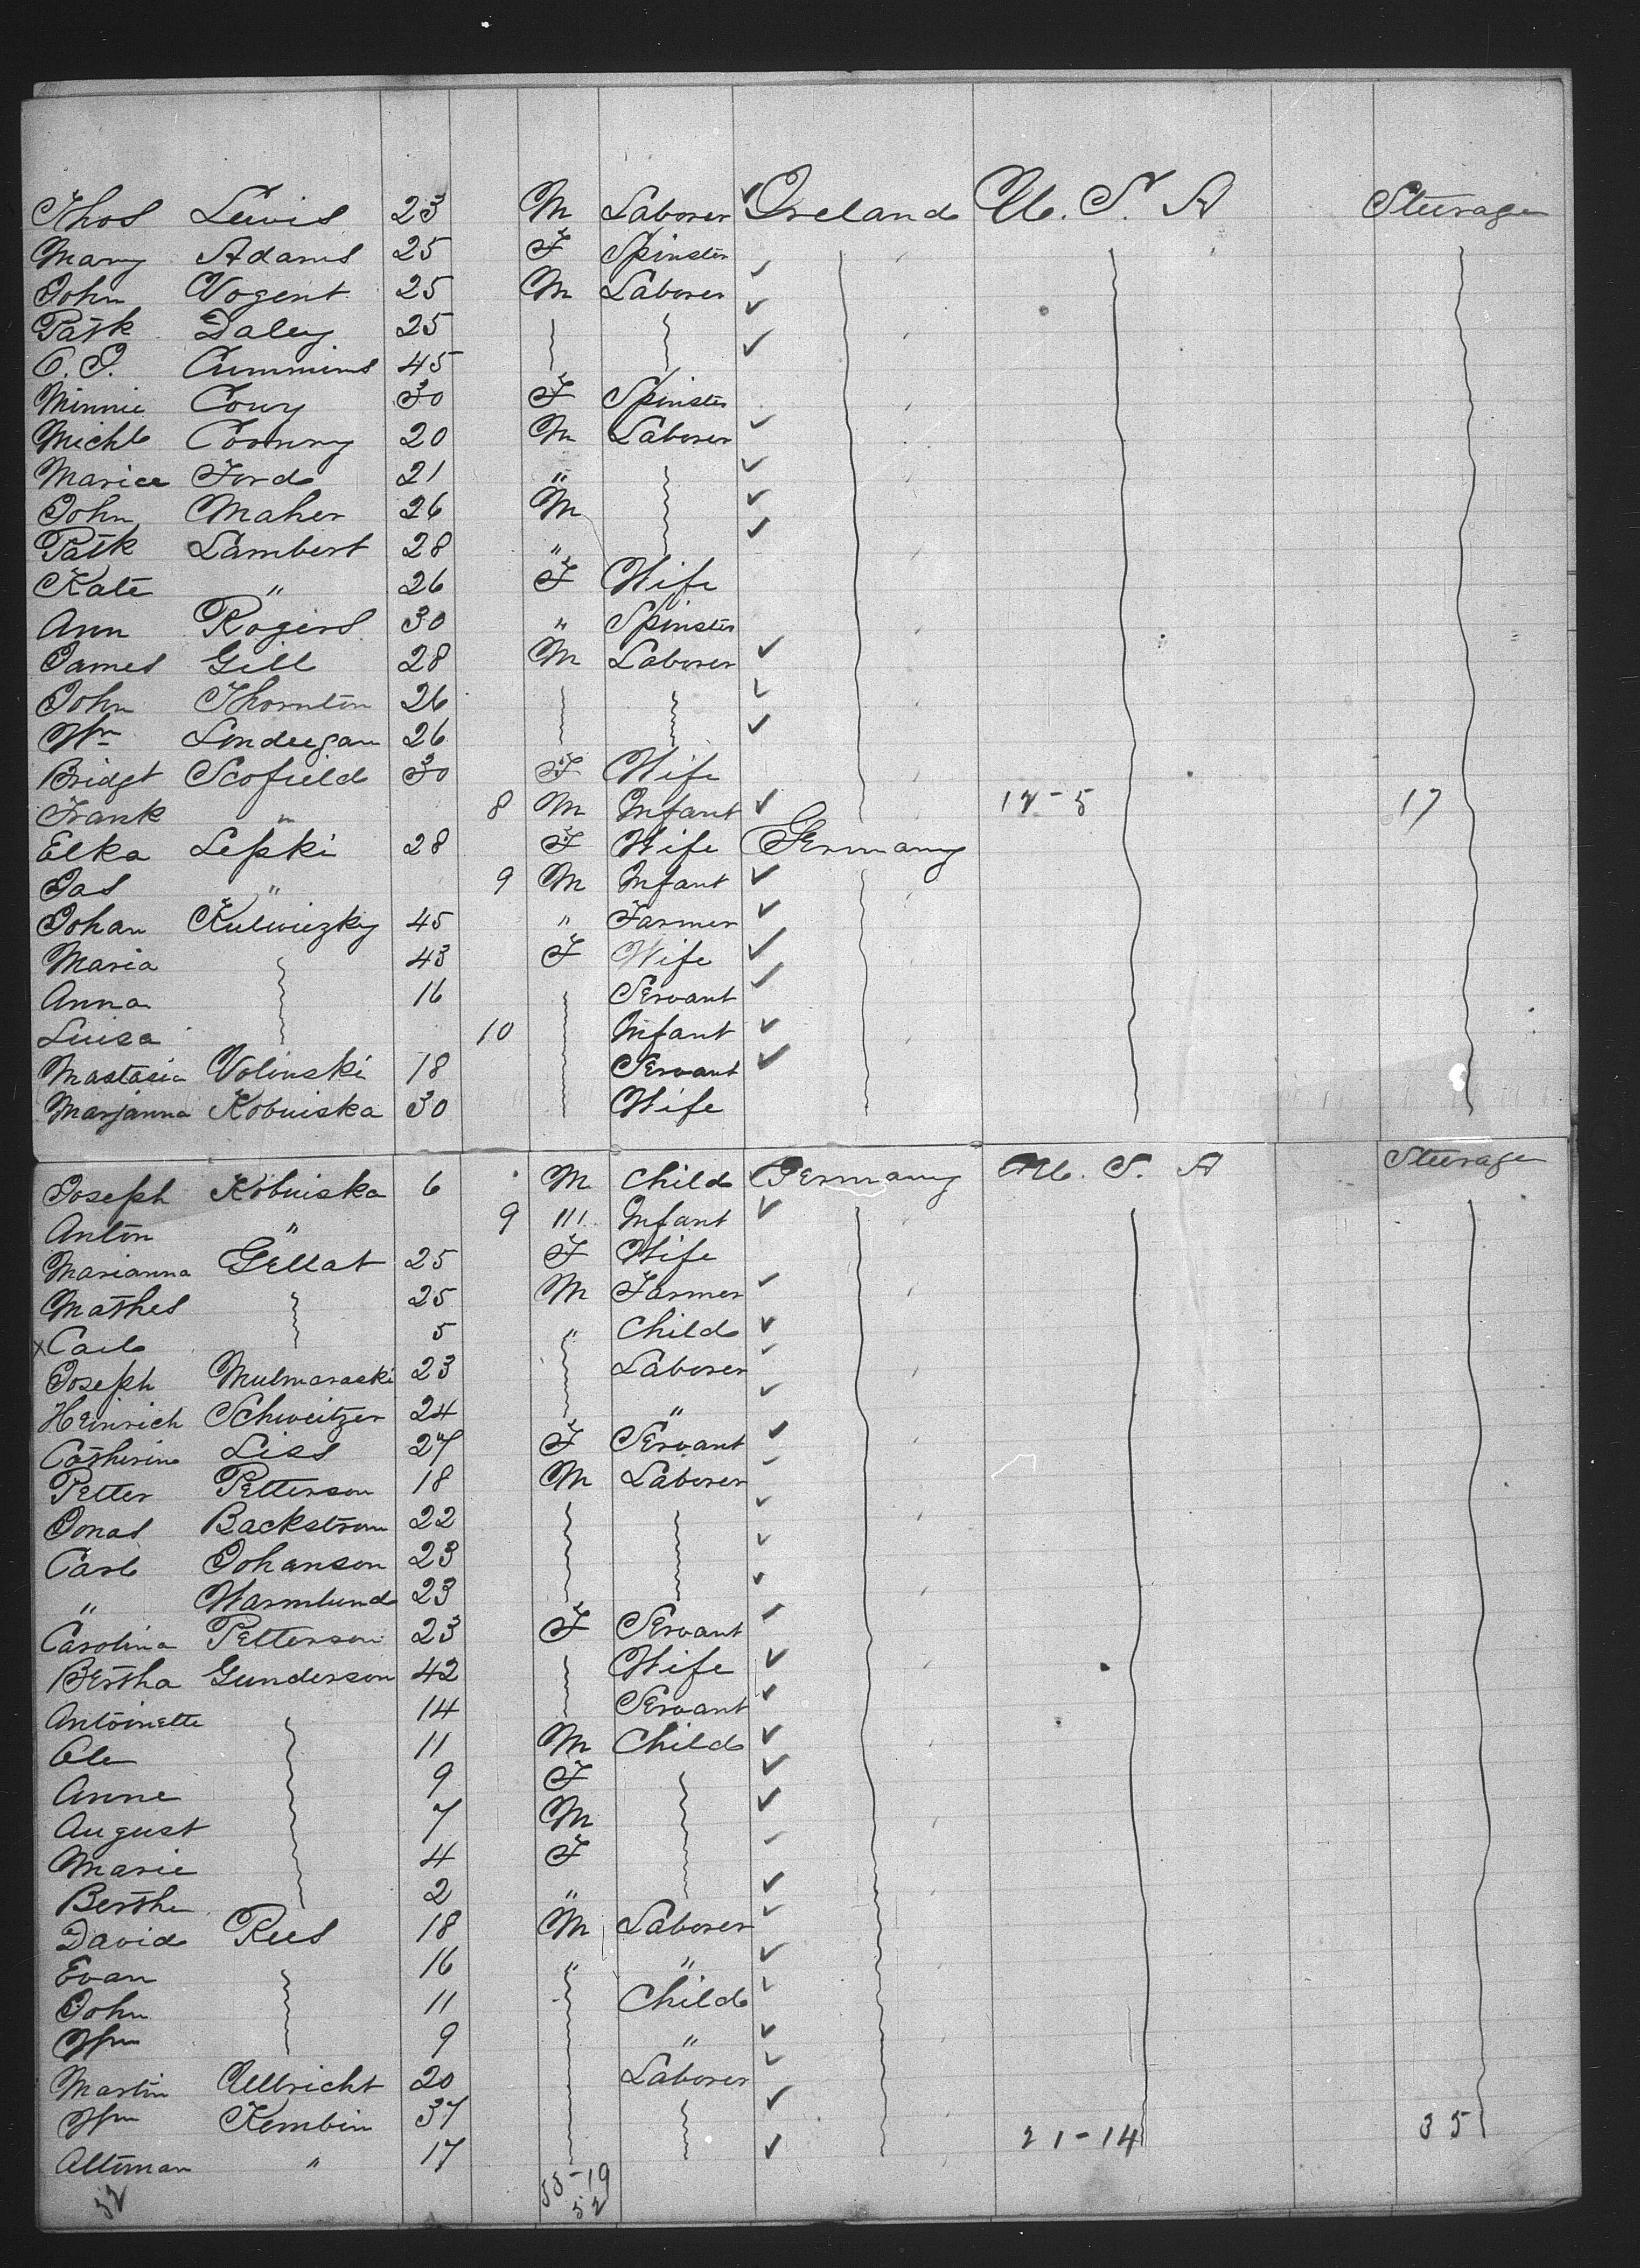 Thos Lewis 23 M Laborer Ireland U. S. A Steerage
Mary Adams 25 F Spinster
John Nogent 25 M Laborer
Patk Daley 25
Cummins 45
Minnie Cony 30 F Spinster
Michl 20 M Laborer
Ford 21 "
John Maher 26 M
Patk Lambert 28 "
Kate " 26 F Wife
Ann Rogers 30 " Spinster
James Gill 28 M Laborer
John Thornton 26
Wm Londregan 26
Bridgt Scofield 30 F Wife
Frank " 8 M Infant 12-5 17
Elka Lepki 28 F Wife Germany
Jas " 9 M Infant
Johan 45 " Farmer
Maria 43 F Wife
Anna 16 Servant
Luisa 10 Infant
Mastasia Volinski 18 Servant
Marjanna Kobuiska 30 Wife
Joseph Kobuiska 6 M Child Germany U. S. A Steerage
Anton " 9 Infant
Marianna Gellat 25 F Wife
Mathes 25 M Farmer
x Carl 5 " Child
Joseph 23 Laborer
Heinrich Schweitzer 24 "
Catherine Liss 27 F Servant
Petter Petterson 18 M Laborer
Jonas Backstrom 22
Carl Johanson 23
" Warmlund 23
Carolina Petterson 23 F Servant
Bertha Gunderson 42 Wife
Antoinette 14 Servant
Ole 11 M Child
Anne 9 F
August 7 M
Marie 4 F
Berthe 2 "
David Rees 18 M Laborer
Evan 16 " "
John 11 Child
Wm 9 "
Martin Ullricht 20 Laborer
Wm Kembin 37 21-14 35
Altman " 17
52 55-19
52